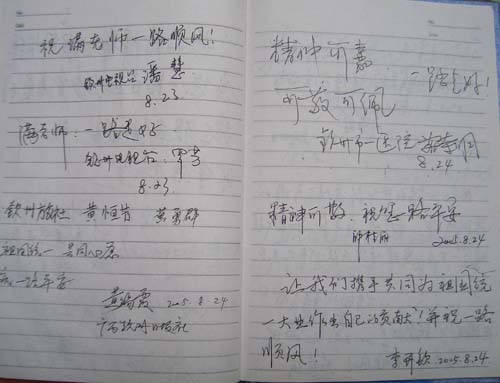 祝满老师一路顺风!
钦州电视台 潘慧
8.23
满老师:一路走好
钦州电视台:
8.23
钦州旅社 黄恒 黄勇群
祖国统一 共同心愿
一路平安
黄海霞 2005.8.24
广西政协报社
精神可嘉
一路走好!
可敬可佩
钦州市一医院
8.24
精神可敬,祝您一路平安
2005.8.24
让我们携手共同为祖国统
一大业作出自己的贡献!并祝一路
顺风!
李 2005.8.24